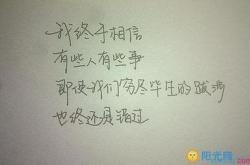 我终于相信
有些人有些事
即使我们穷尽毕生的跋涉
也终还是错过
阳光网